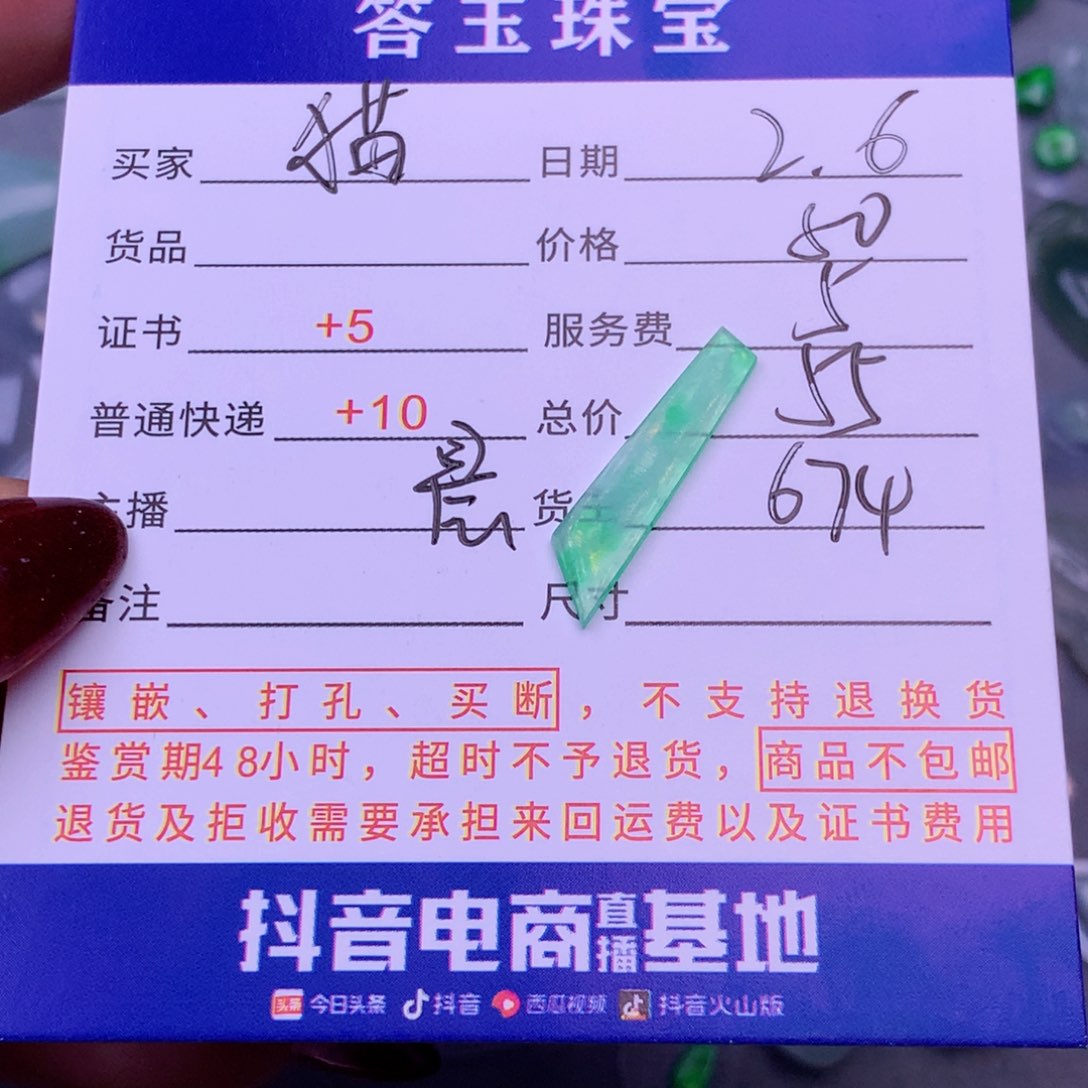 答玉珠宝
买家 猫 日期 2.6
货品 价格 50
证书 +5 服务费 5
普通快递 +10 总价 55
主播 货主 674
备注 尺寸
镶嵌、打孔、买断，不支持退换货
鉴赏期48小时，超时不予退货，商品不包邮
退货及拒收需要承担来回运费以及证书费用
抖音电商直播基地
头条 今日头条 抖音 西瓜视频 抖音火山版